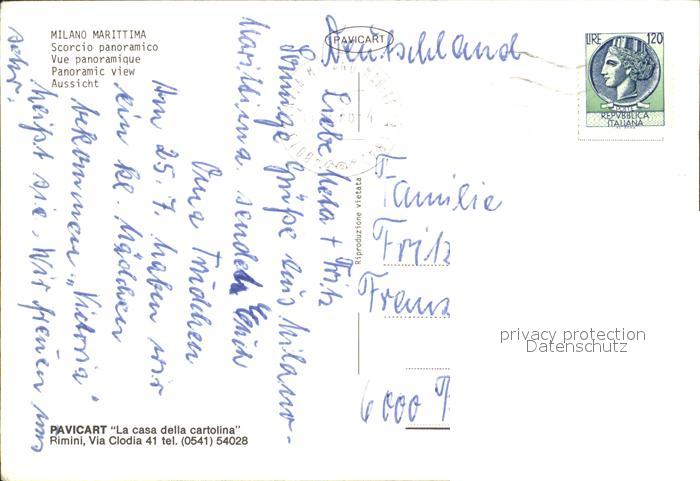 MILANO MARITTIMA
Scorcio panoramico
Vue panoramique
Panoramic view
Aussicht
PAVICART
Deutschland
LIRE 120
REPVBBLICA
ITALIANA
Liebe Meta + Fritz
Sonnige Grüße aus Milano-
Marittima sendet Euch
Oma Trudchen
Am 25.7. haben wir
ein kl. Mädchen
bekommen „Victoria"
heißt sie, Wir freuen uns
sehr.
Riproduzione vietata
Familie
Fritz
Franz
6000
privacy protection
Datenschutz
PAVICART "La casa della cartolina"
Rimini, Via Clodia 41 tel. (0541) 54028